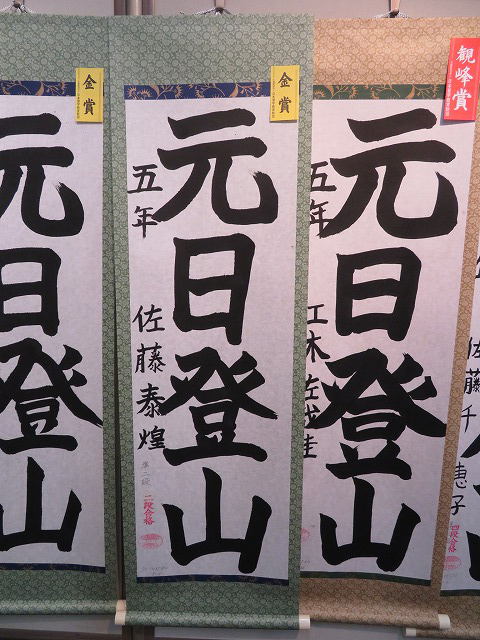 観峰賞
元日登山
五年
金賞
元日登山
五年
佐藤泰煌
準二段
二段合格
金賞
元日登山
佐藤千
恵子
四段合格